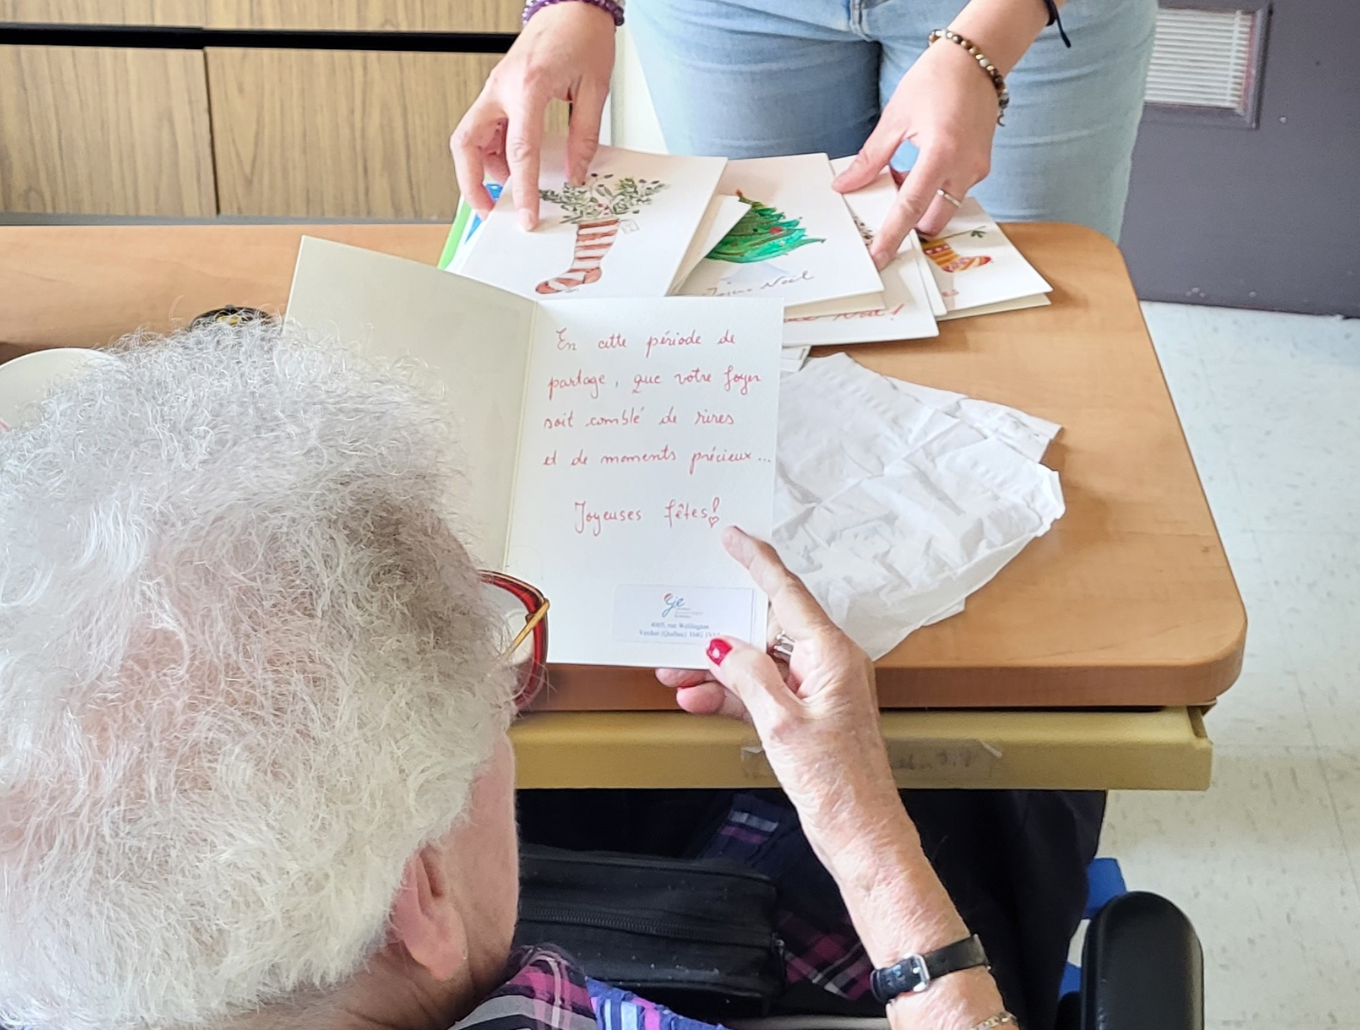 Joyeux Noël
Noël!
En cette période de
partage, que votre foyer
soit comblé de rires
et de moments précieux...
Joyeuses fêtes!
cje
4007, rue Wellington
Verdun (Québec) H4G 1V